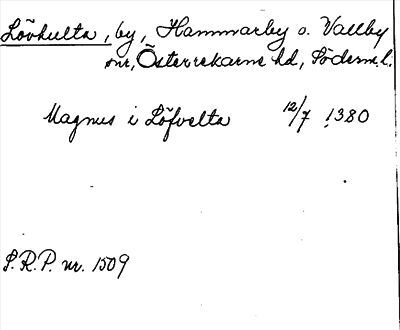 Lövhulta, by, Hammarby o. Vallby
snr, Österrekarne hd, Söderm. l.
Magnus i Löfvelta 12/7 1380
S.R.P. nr. 1509